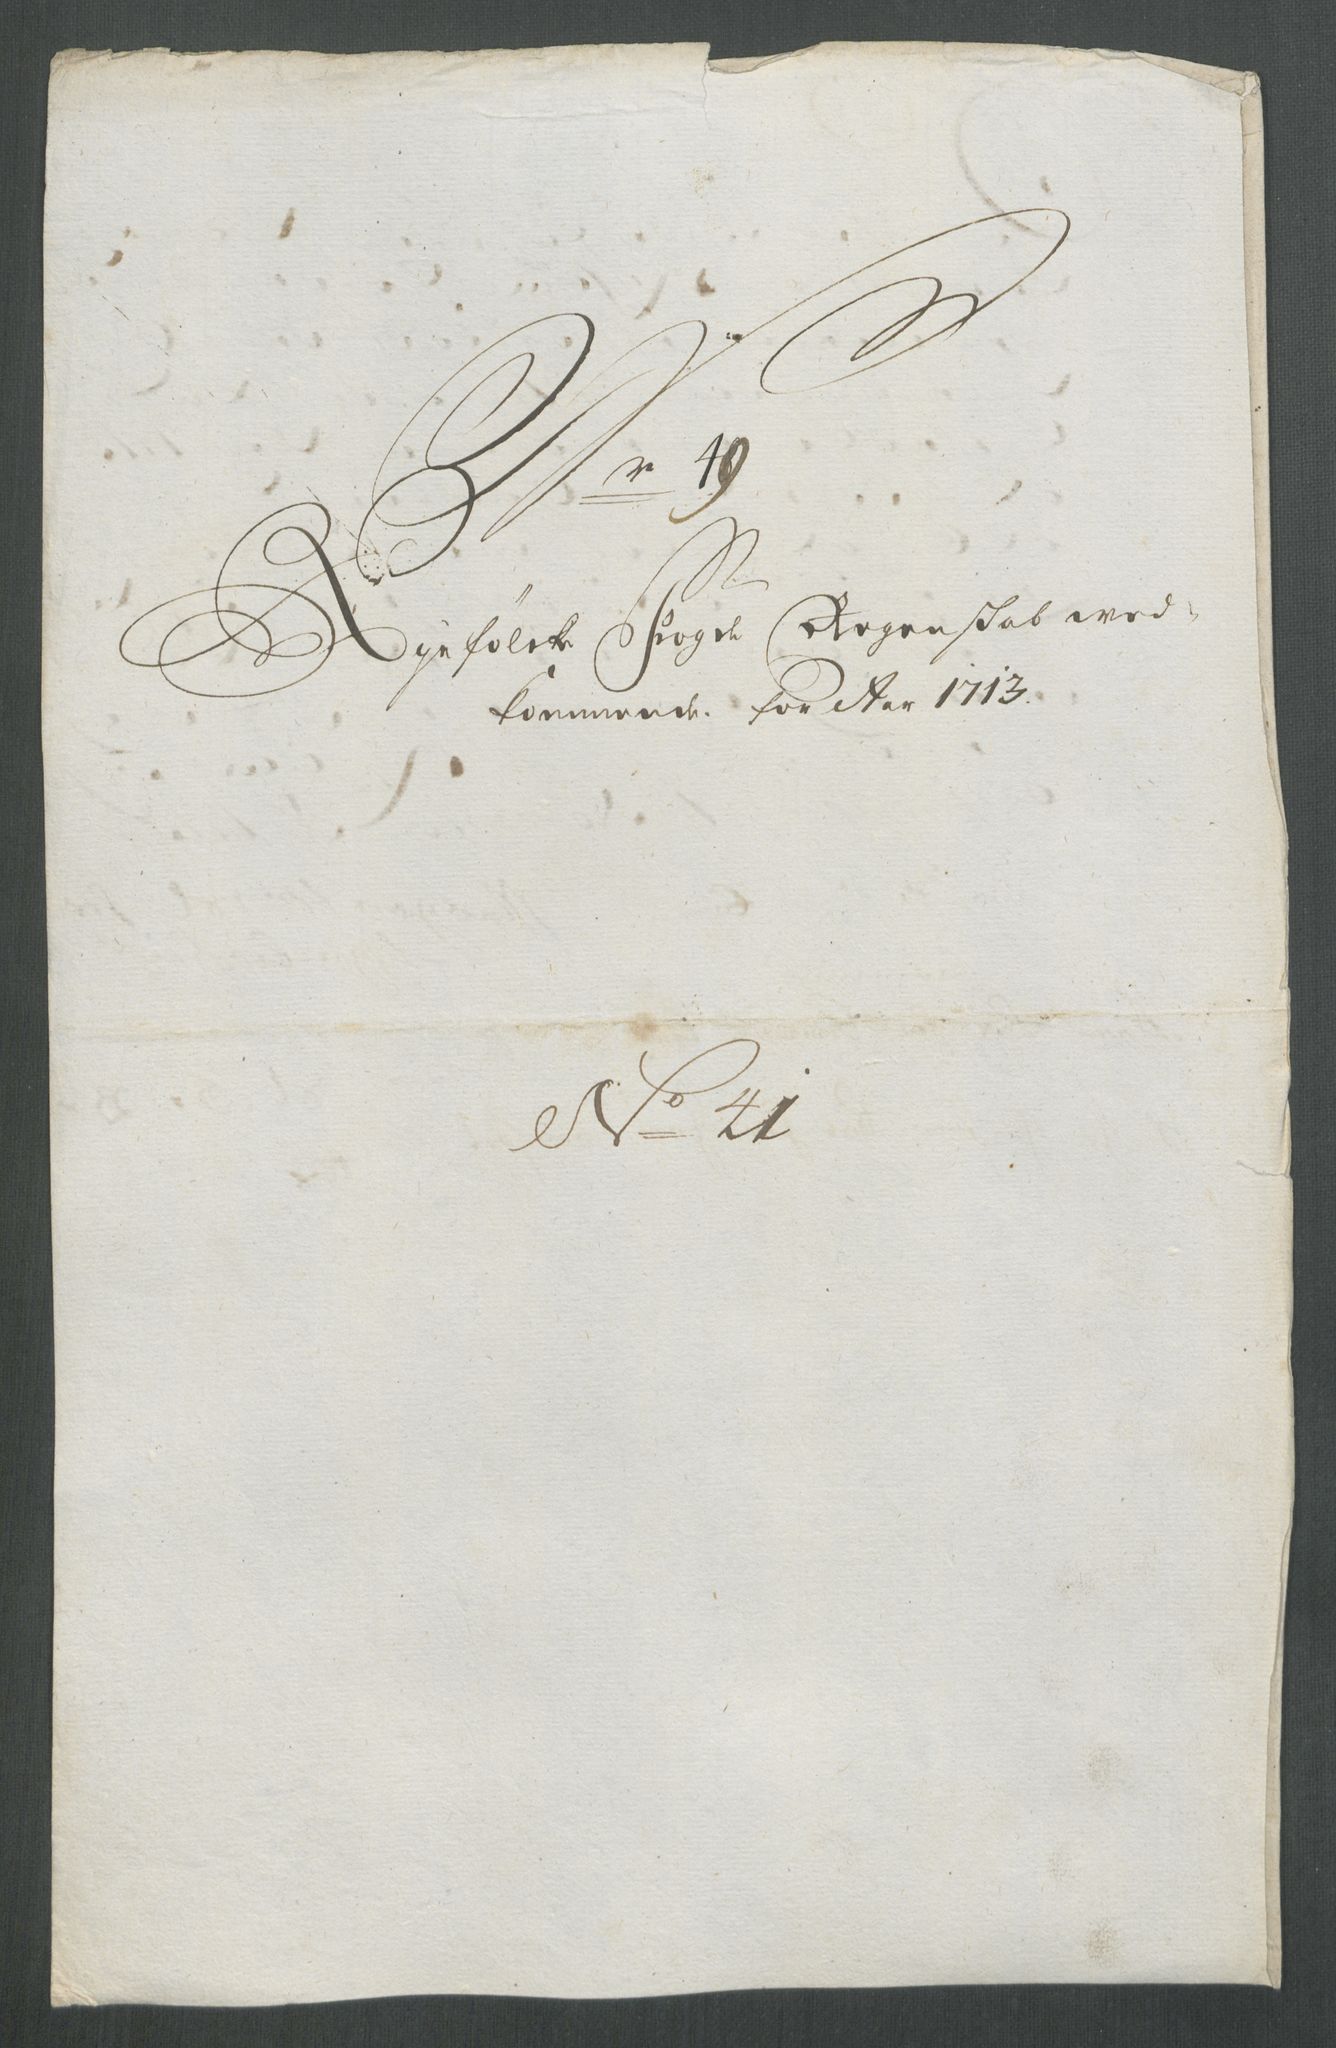 Nr 49
Ryefölcke Fogde Regenskab wed-
kommende for Aar 1713.
No 41